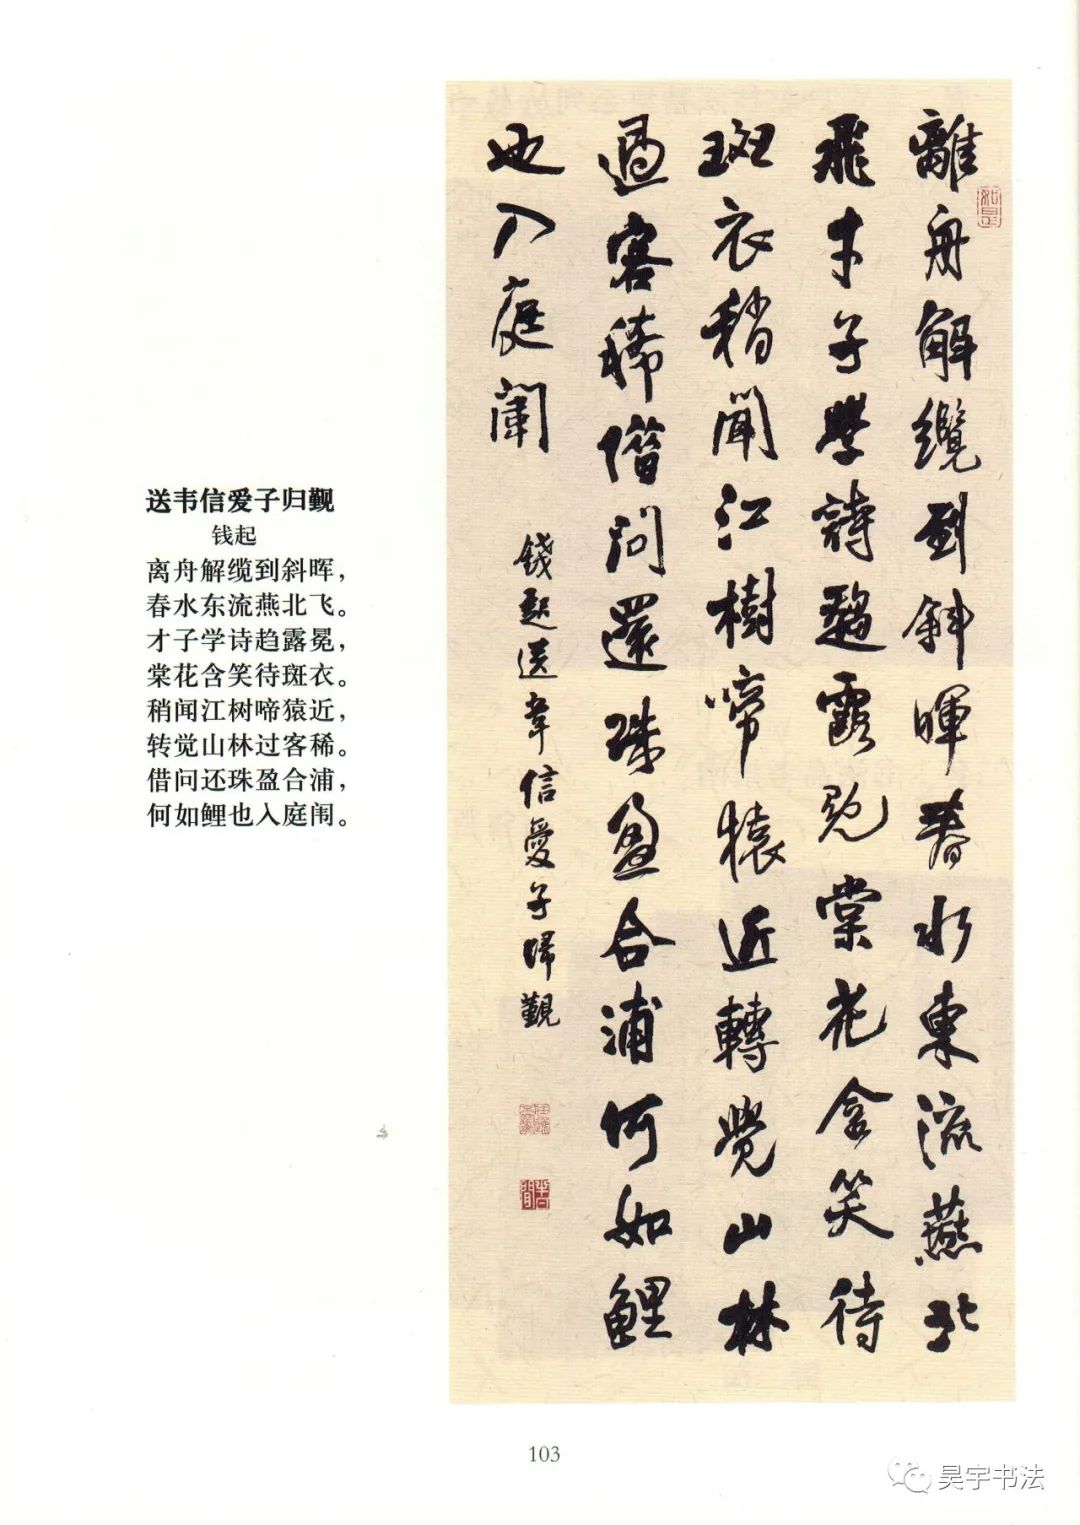 送韦信爱子归觐
钱起
离舟解缆到斜晖，
春水东流燕北飞。
才子学诗趋露冕，
棠花含笑待斑衣。
稍闻江树啼猿近，
转觉山林过客稀。
借问还珠盈合浦，
何如鲤也入庭闱。
離舟解纜到斜暉春水東流燕北
飛才子學詩趨露冕棠花含笑待
斑衣稍聞江樹啼猿近轉覺山林
過客稀借問還珠盈合浦何如鯉
也入庭闈
錢起送韋信愛子歸覲
如是
103
昊宇书法